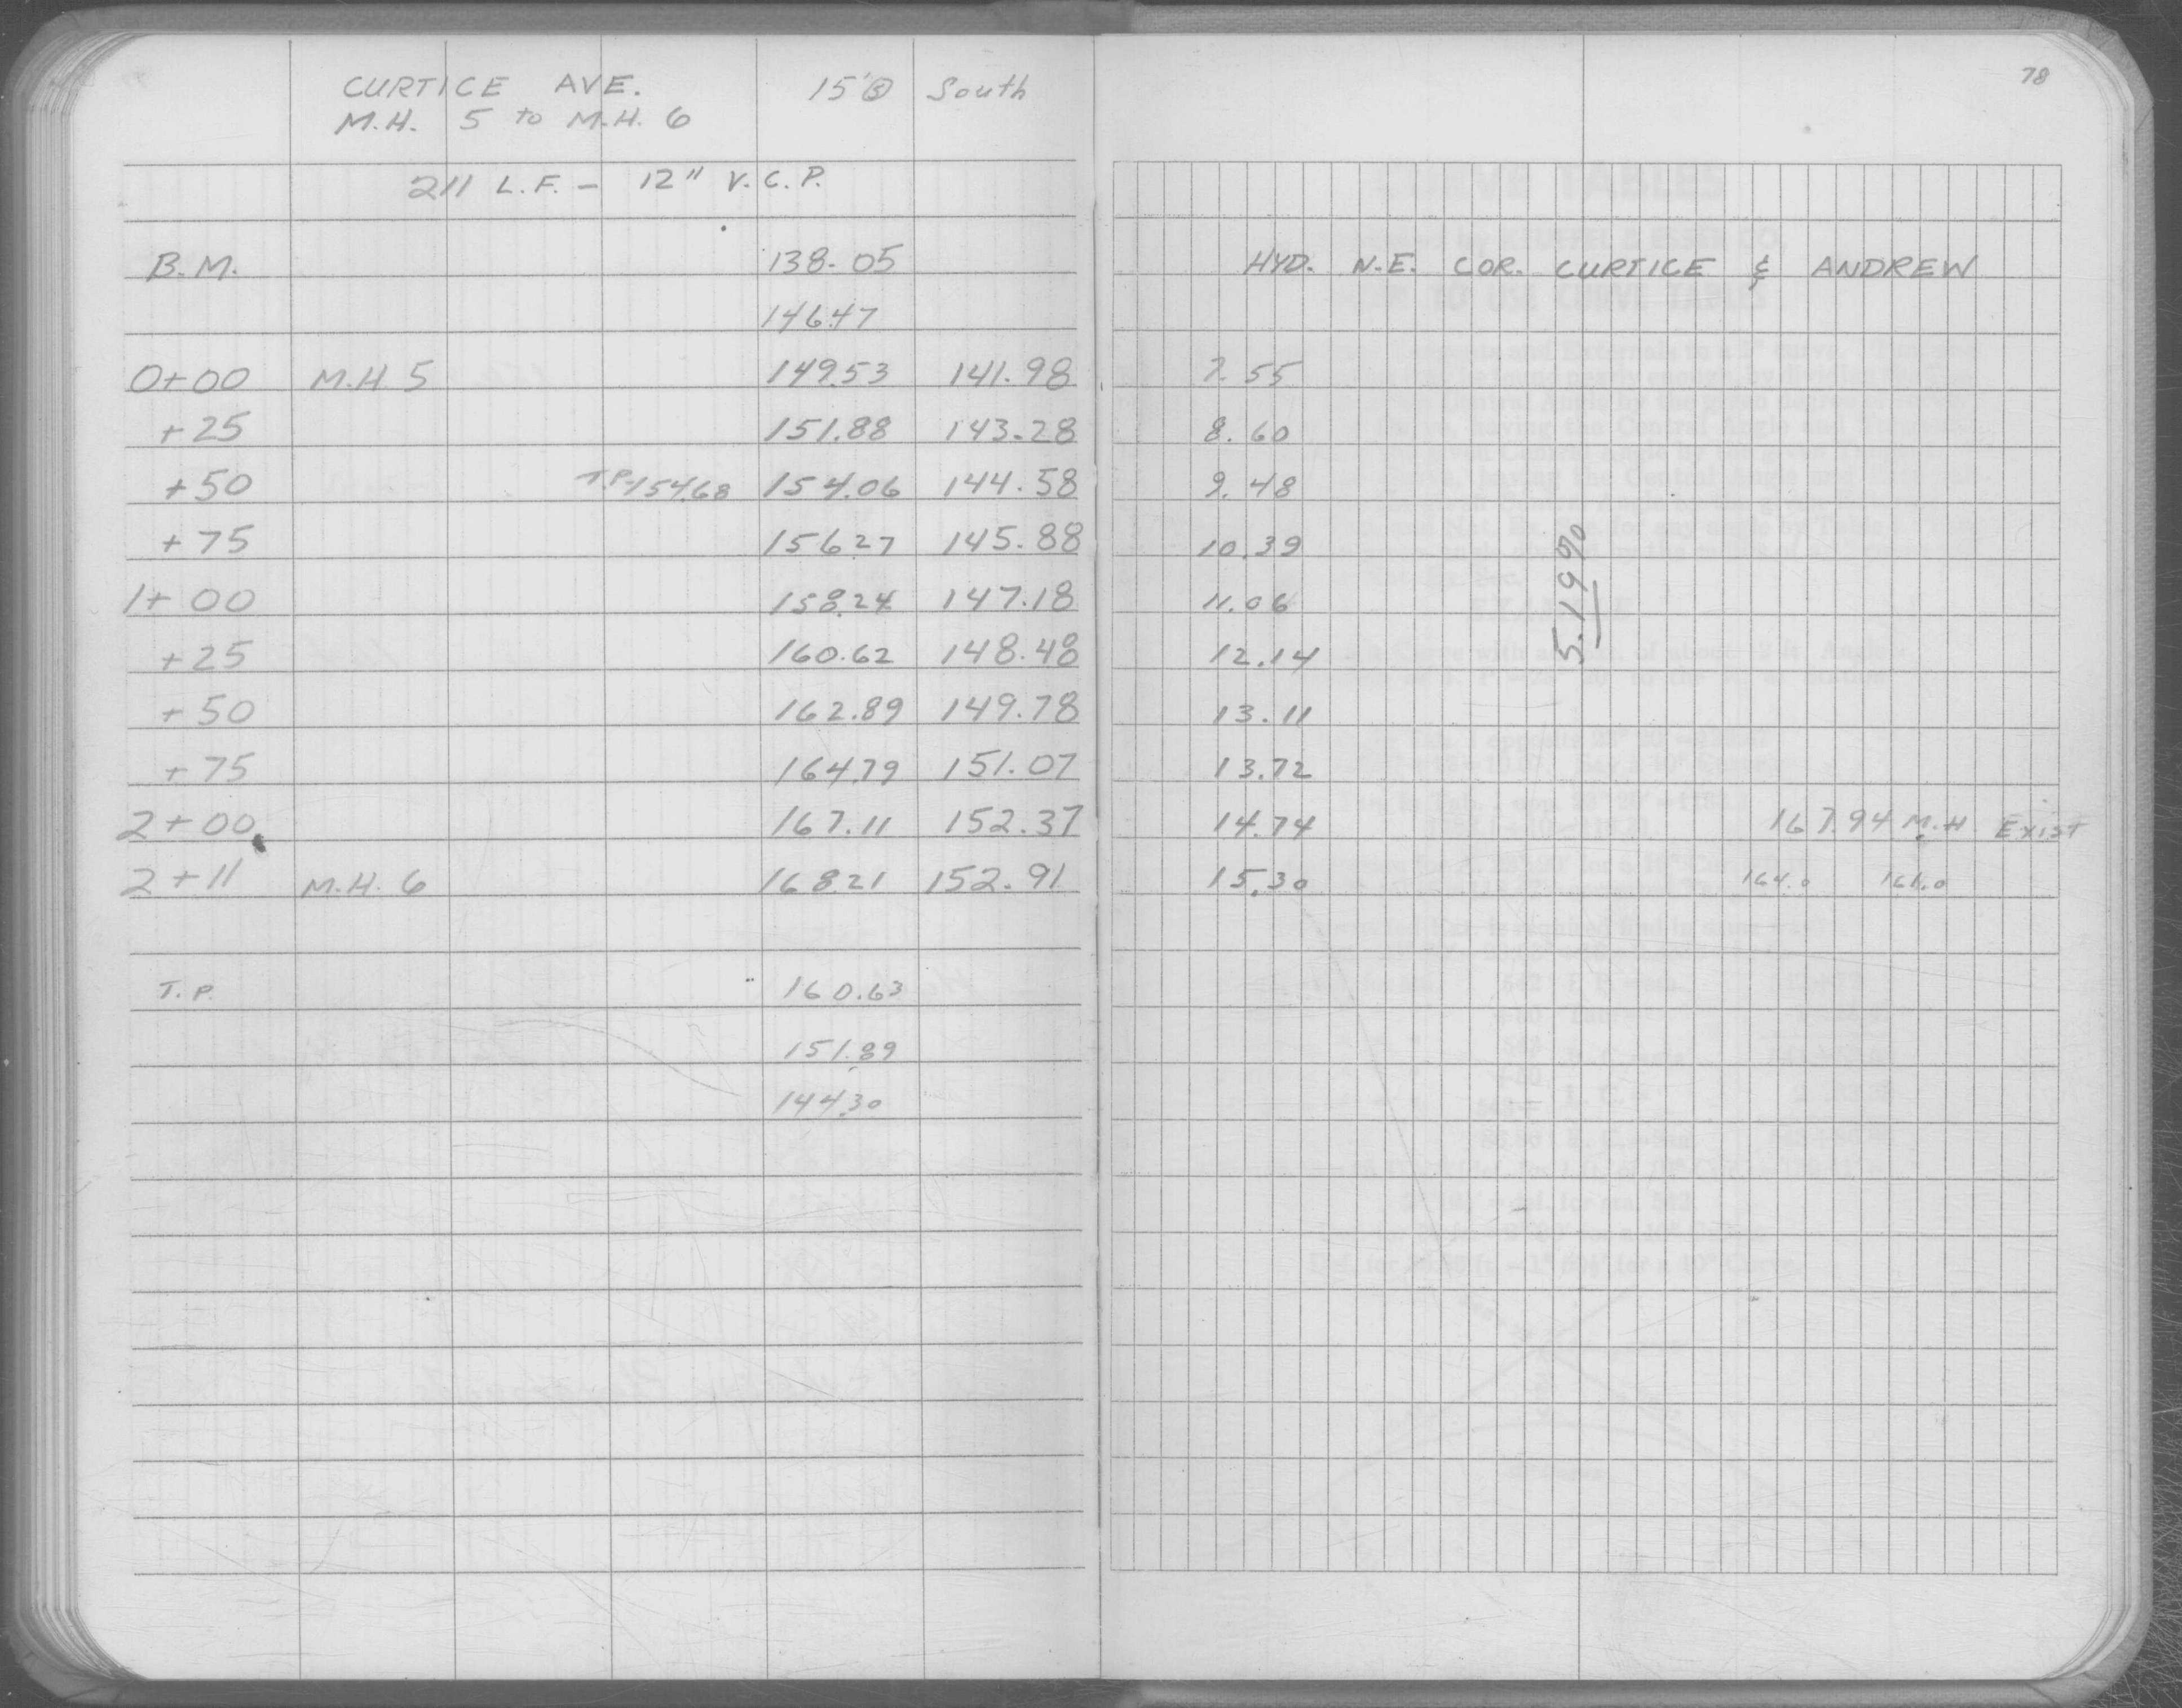 78
CURTICE AVE. 15' South
M.H. 5 to M.H. 6
211 L.F. - 12" V.C.P.
B.M. 138.05 HYD. N.E. COR. CURTICE & ANDREW
146.47
0+00 M.H 5 149.53 141.98 7.55
+25 151.88 143.28 8.60
+50 T.P. 154.68 154.06 144.58 9.48
+75 156.27 145.88 10.39
1+00 158.24 147.18 11.06
+25 160.62 148.48 12.14
5.19%
+50 162.89 149.78 13.11
+75 164.79 151.07 13.72
2+00 167.11 152.37 14.74 167.94 M.H Exist
2+11 M.H. 6 168.21 152.91 15.30 164.0 161.0
T.P. 160.63
151.89
144.30